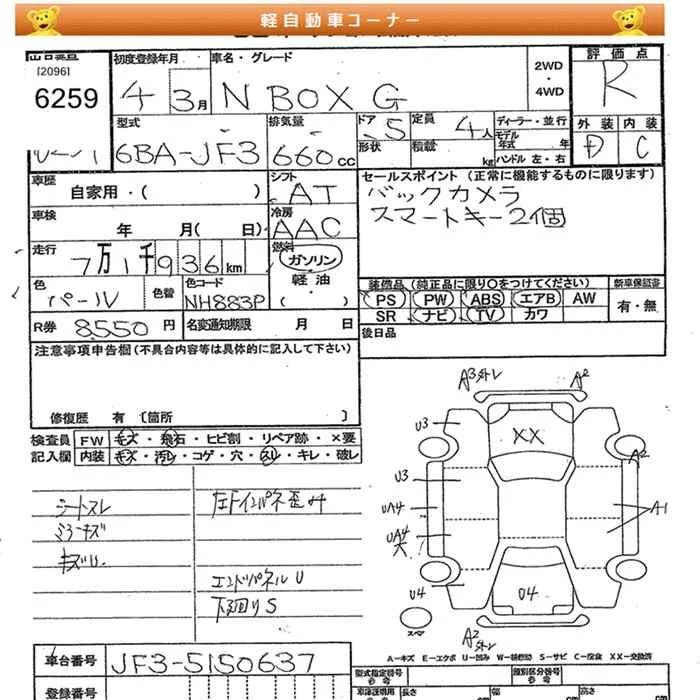 軽自動車コーナー
出品番号
[2096]
6259
初度登録年月
4
3月
車名・グレード
N BOX G
2WD
・
4WD
評価点
R
型式
6BA-JF3
排気量
660cc
ドア
5
形状
定員
4人
積載
kg
ディーラー・並行
モデル年式 年
ハンドル 左・右
外装
D
内装
C
車歴
自家用・( )
シフト
AT
車検
年 月( 日)
冷房
AAC
セールスポイント (正常に機能するものに限ります)
バックカメラ
スマートキー2個
走行
7万1千936km
燃料
ガソリン
・
軽油
・
( )
色
パール
色替
色コード
NH883P
装備品 (純正品に限り○をつけてください)
新車保証書
PS PW ABS エアB AW
SR ナビ TV カワ
有・無
R券 8550円
名変通知期限 月 日
後日品
注意事項申告欄 (不具合内容等は具体的に記入して下さい)
修復歴 有 〔箇所 〕
検査員
記入欄
FW キズ・飛石・ヒビ割・リペア跡・×要
内装 キズ・汚レ・コゲ・穴・スレ・キレ・破レ
シートスレ
キズ
エンドパネルU
下廻りS
A3外レ
A2
U3
XX
A2
U3
UA4
A1
UA4
U4
U4
スペア
A2
外レ
A-キズ E-エクボ U-凹み W-補修跡 S-サビ C-腐食 XX-交換済
車台番号 JF3-5150637
型式指定番号
類別区分番号
登録番号
長さ
幅
高さ